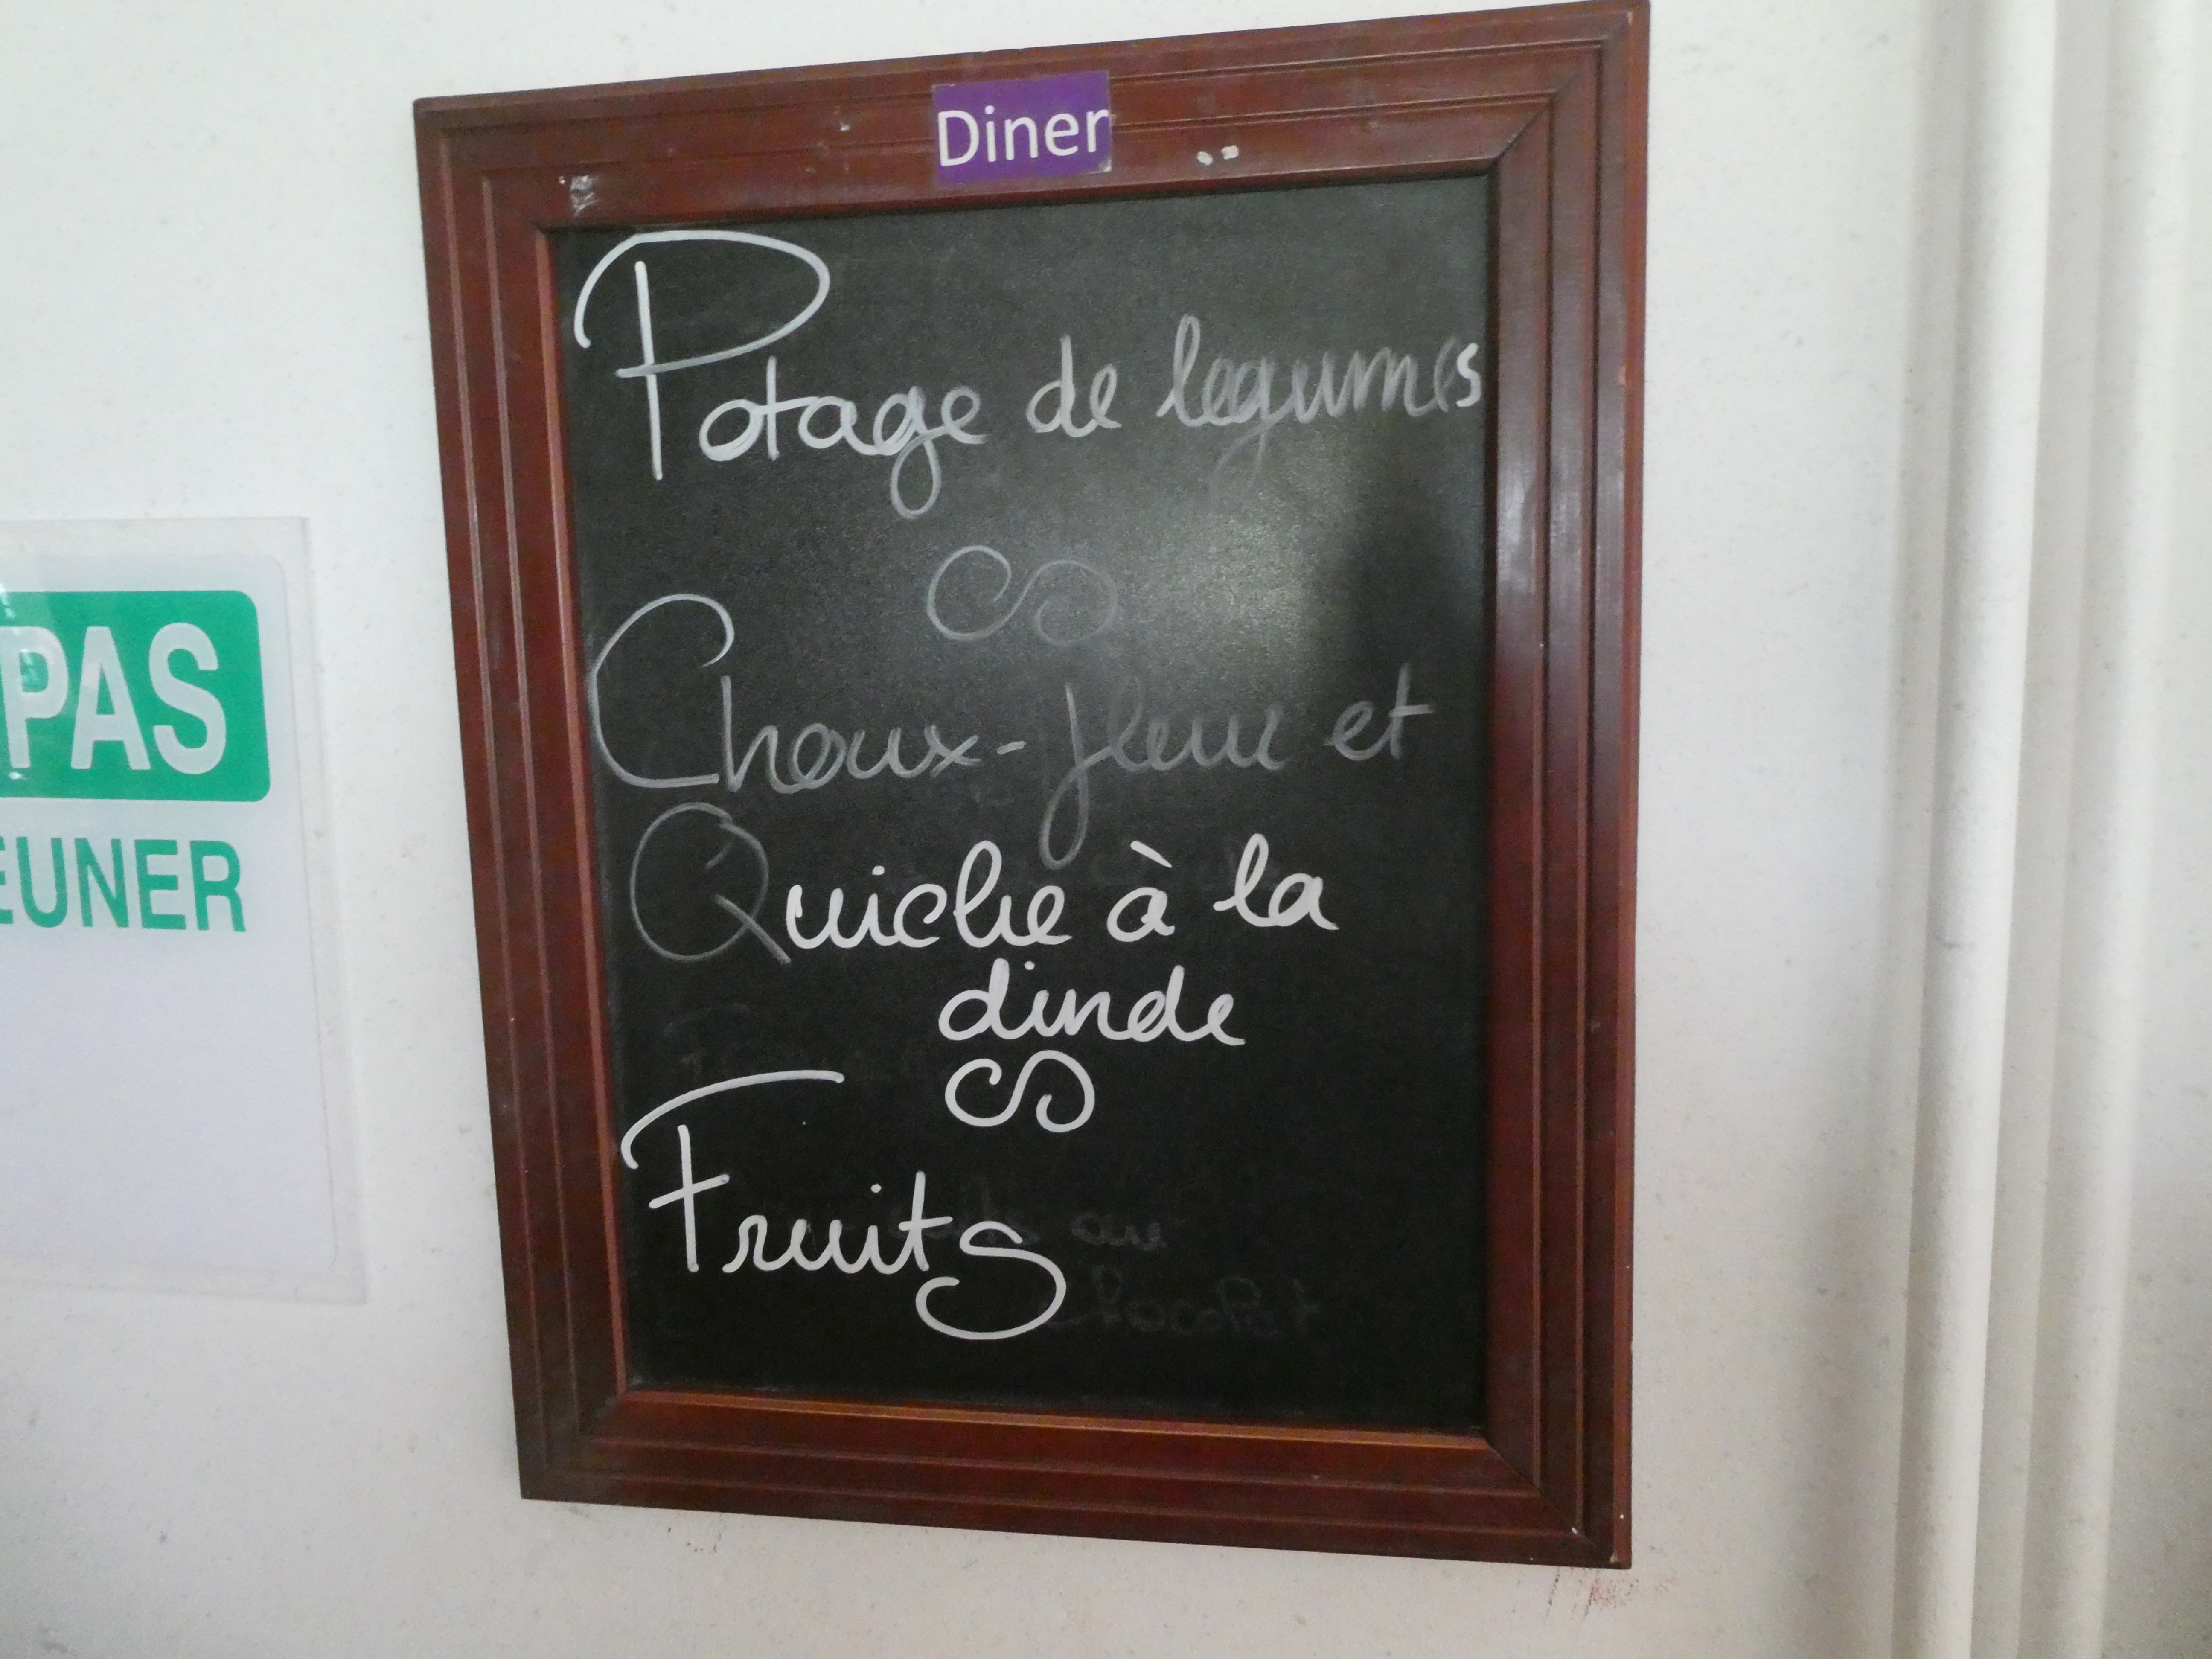 Diner
Potage de legumes
Choux-fleur et
Quiche à la
dinde
Fruits
PAS
EUNER